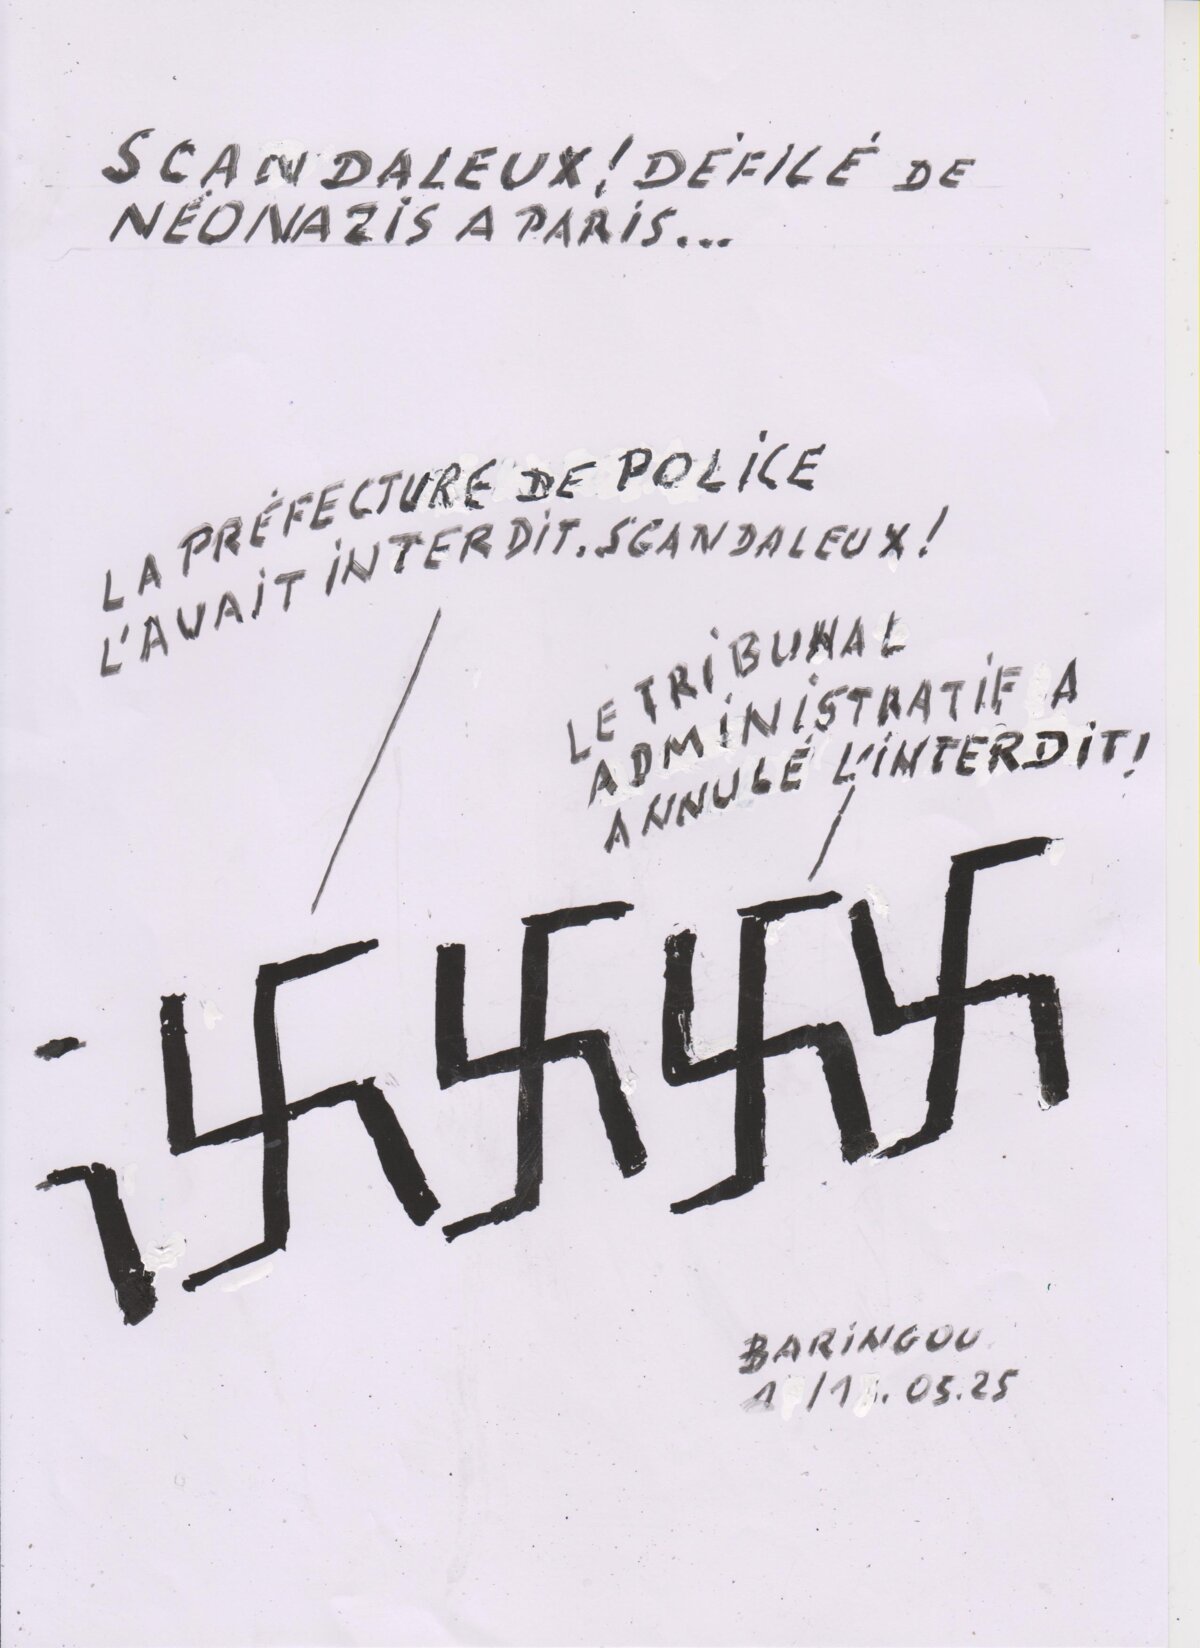 SCANDALEUX! DÉFILÉ DE
NÉONAZIS A PARIS...
LA PRÉFECTURE DE POLICE
L'AVAIT INTERDIT. SCANDALEUX!
LE TRIBUNAL
ADMINISTRATIF A
ANNULÉ L'INTERDIT!
BARINGOU
05.25